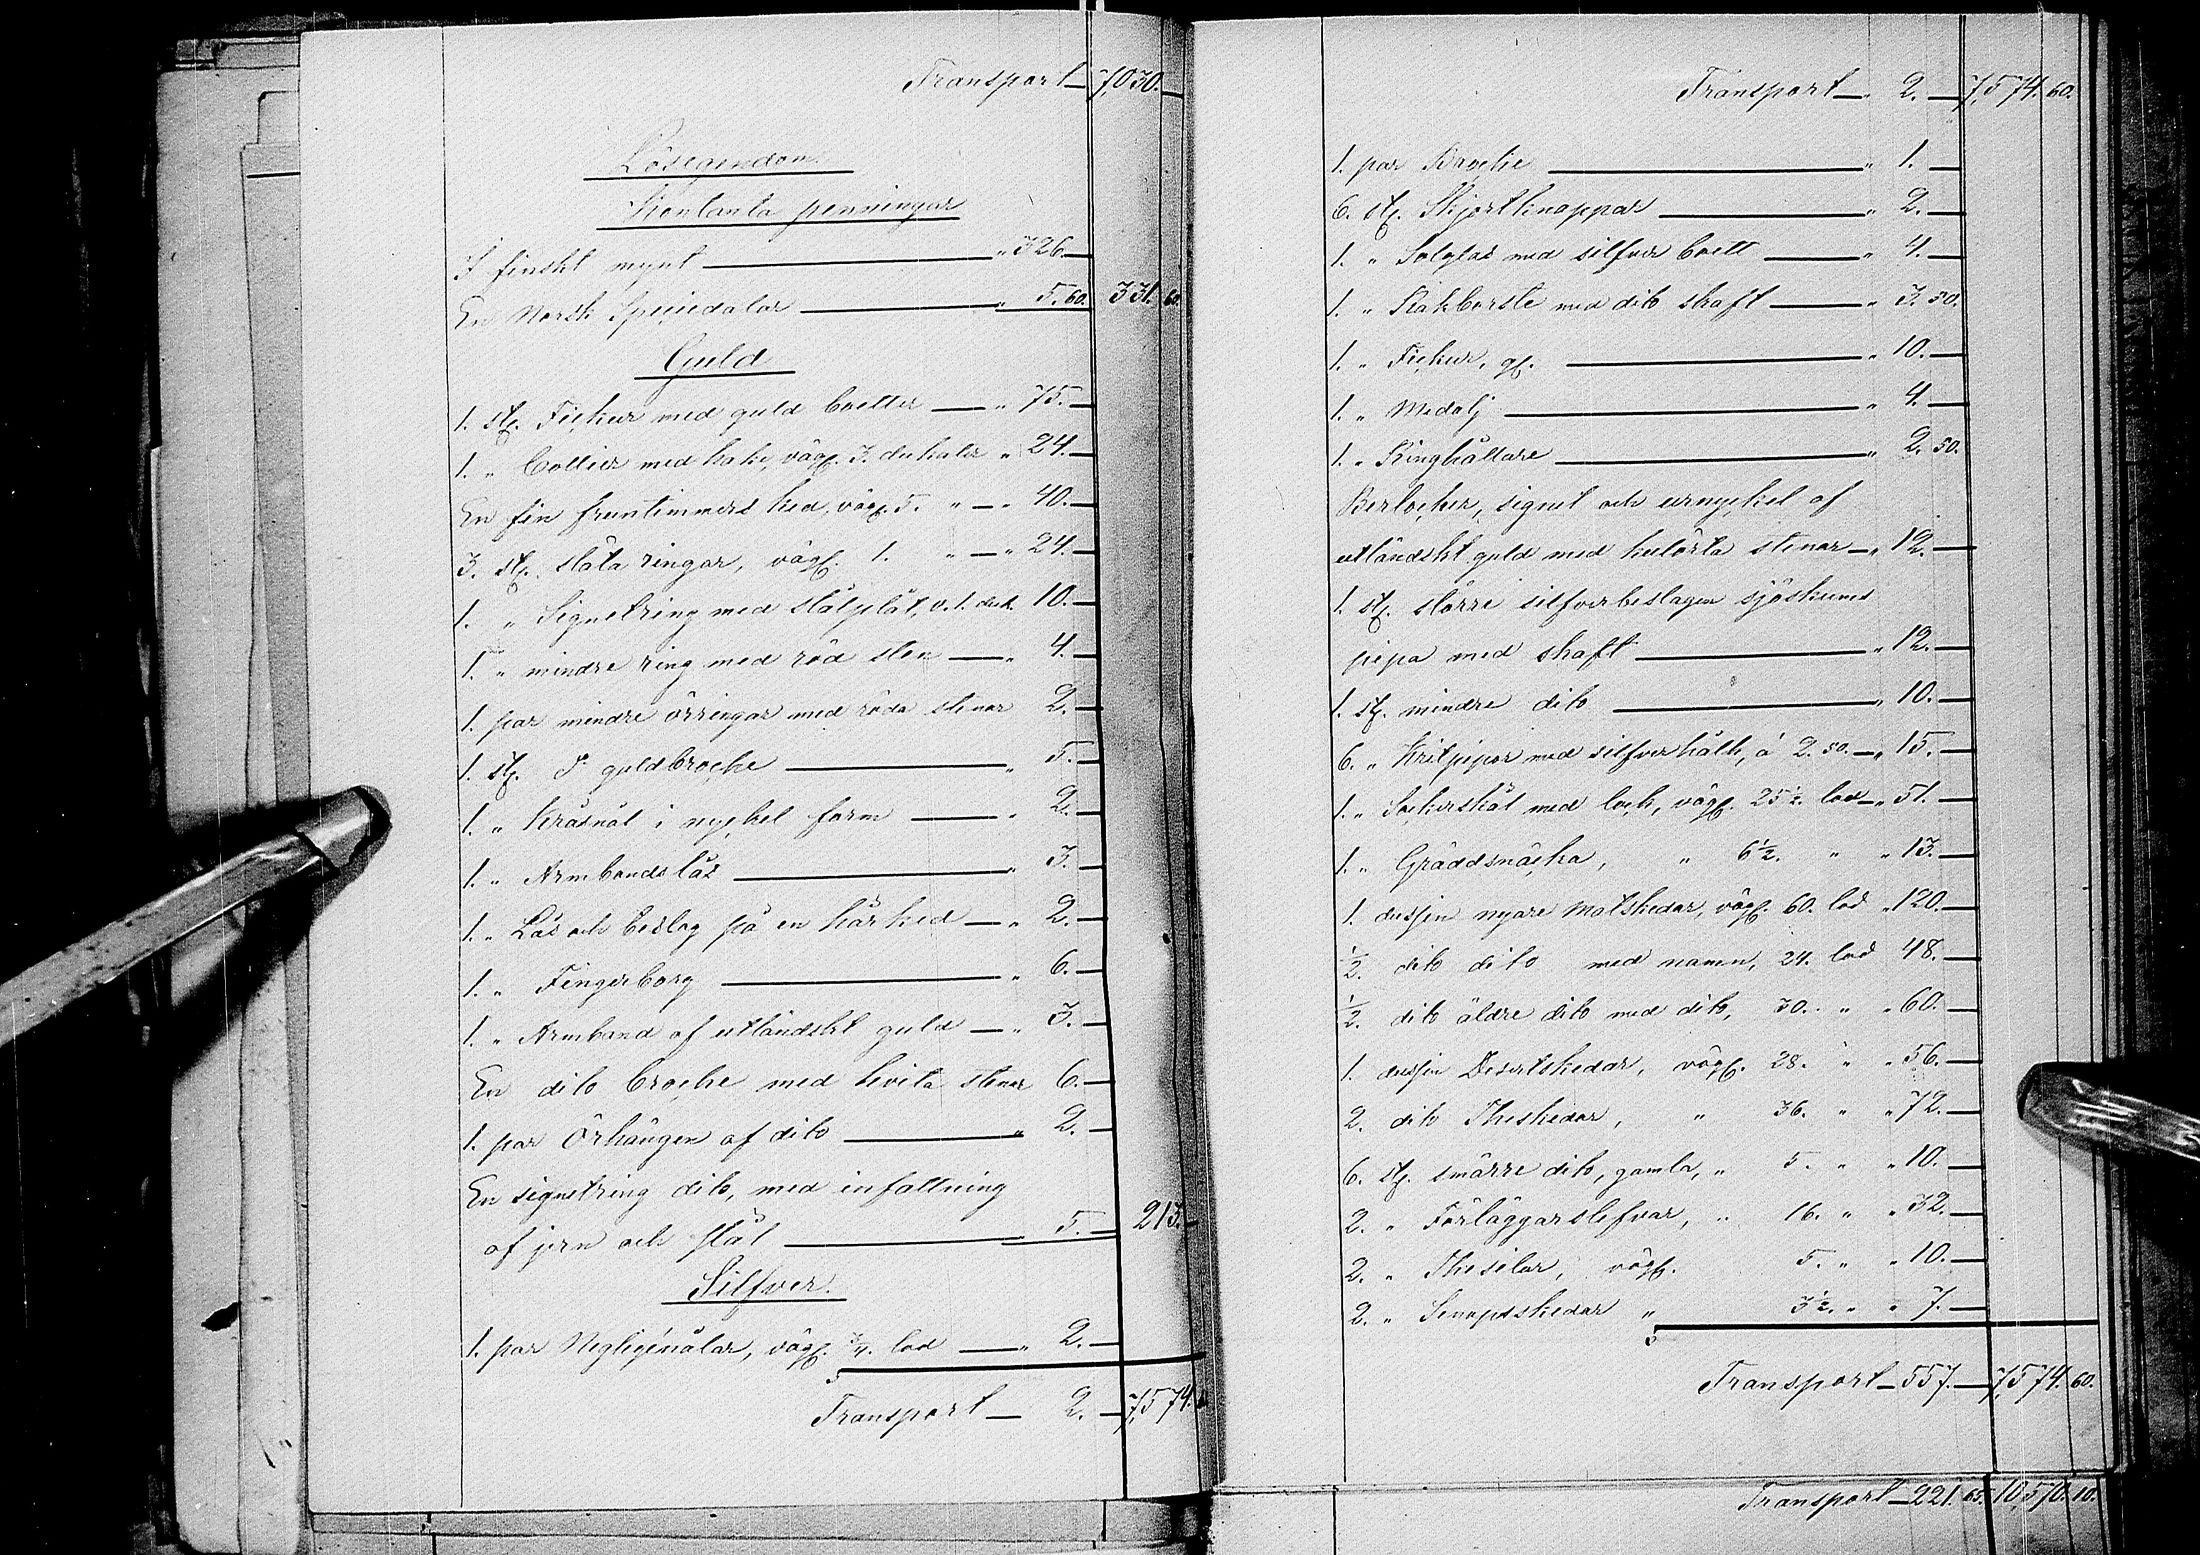 Transport — 7,030. —
Lösegendom.
Kontanta penningar
I finskt mynt — " 326. —
En Norsk Speciedalar — " 5. 60. 331. 60.
Guld
1. st. Fickur med guld boetter — " 75. —
1. " Collier med hake, väg. 3. dukater " 24. —
En fin fruntimmers ked, väg. 5. " — " 40. —
3. st. släta ringar, väg. 1. " — " 24. —
1. " Signetring med slät plåt, v. 1. duk. 10. —
1. " mindre ring med röd sten — " 4. —
1. par mindre örringar med röda stenar 2. —
1. st. guldbroche — " 5. —
1. " Kråsnål i nyckel form — " 2. —
1. " Armbandslås — " 3. —
1. " Lås och beslag på en hårked — " 2. —
1. " Fingerborg — " 6. —
1. " Armband af utländskt guld — " 3. —
En dito broche med hvita stenar 6. —
1. par Örhängen af dito — " 2. —
En signetring dito, med infattning
af jern och stål — " 5. — 213. —
Silfver.
1. par Negligénålar, väg. 3/4. lod — " 2. —
Transport — 2. — 7,574. 60.
Transport — " 2. — 7,574. 60.
1. par — " 1. —
6. st. Skjortknappar — " 2. —
1. " Solglas med silfver boett — " 4. —
1. " Rakborste med dito skaft — " 3. 50.
1. " Fickur, gl. — " 10. —
1. " Medalj — " 4. —
1. " Ringhållare — " 2. 50.
Berlocker, signet och urnyckel af
utländskt guld med kulörta stenar — " 12. —
1. st. större silfverbeslagen sjöskums
pipa med skaft — " 12. —
1. st. mindre dito — " 10. —
6. " Kritpipor med silfverhålk, á 2. 50. — " 15. —
1. " Sockerskål med lock, väg. 25 1/2. lod — " 51. —
1. " Gräddsnäcka, " 6 1/2. " " 13. —
1. dussin nyare Matskedar, väg. 60. lod " 120. —
1/2. dito dito med namn, 24. lod 48. —
1/2. dito äldre dito med dito, 30. " " 60. —
1. dussin Desertskedar, väg. 28. " " 56. —
2. dito Theskedar, " 36. " " 72. —
6. st. smärre dito, gamla, " 5. " " 10. —
2. " Förläggarslefvar, " 16. " " 32. —
2. " Thesilar, väg. 5. " " 10. —
2. " Senapsskedar " 3 1/2. " " 7. —
Transport — 557. — 7,574. 60.
Transport — 221. 65. 10,570. 10.